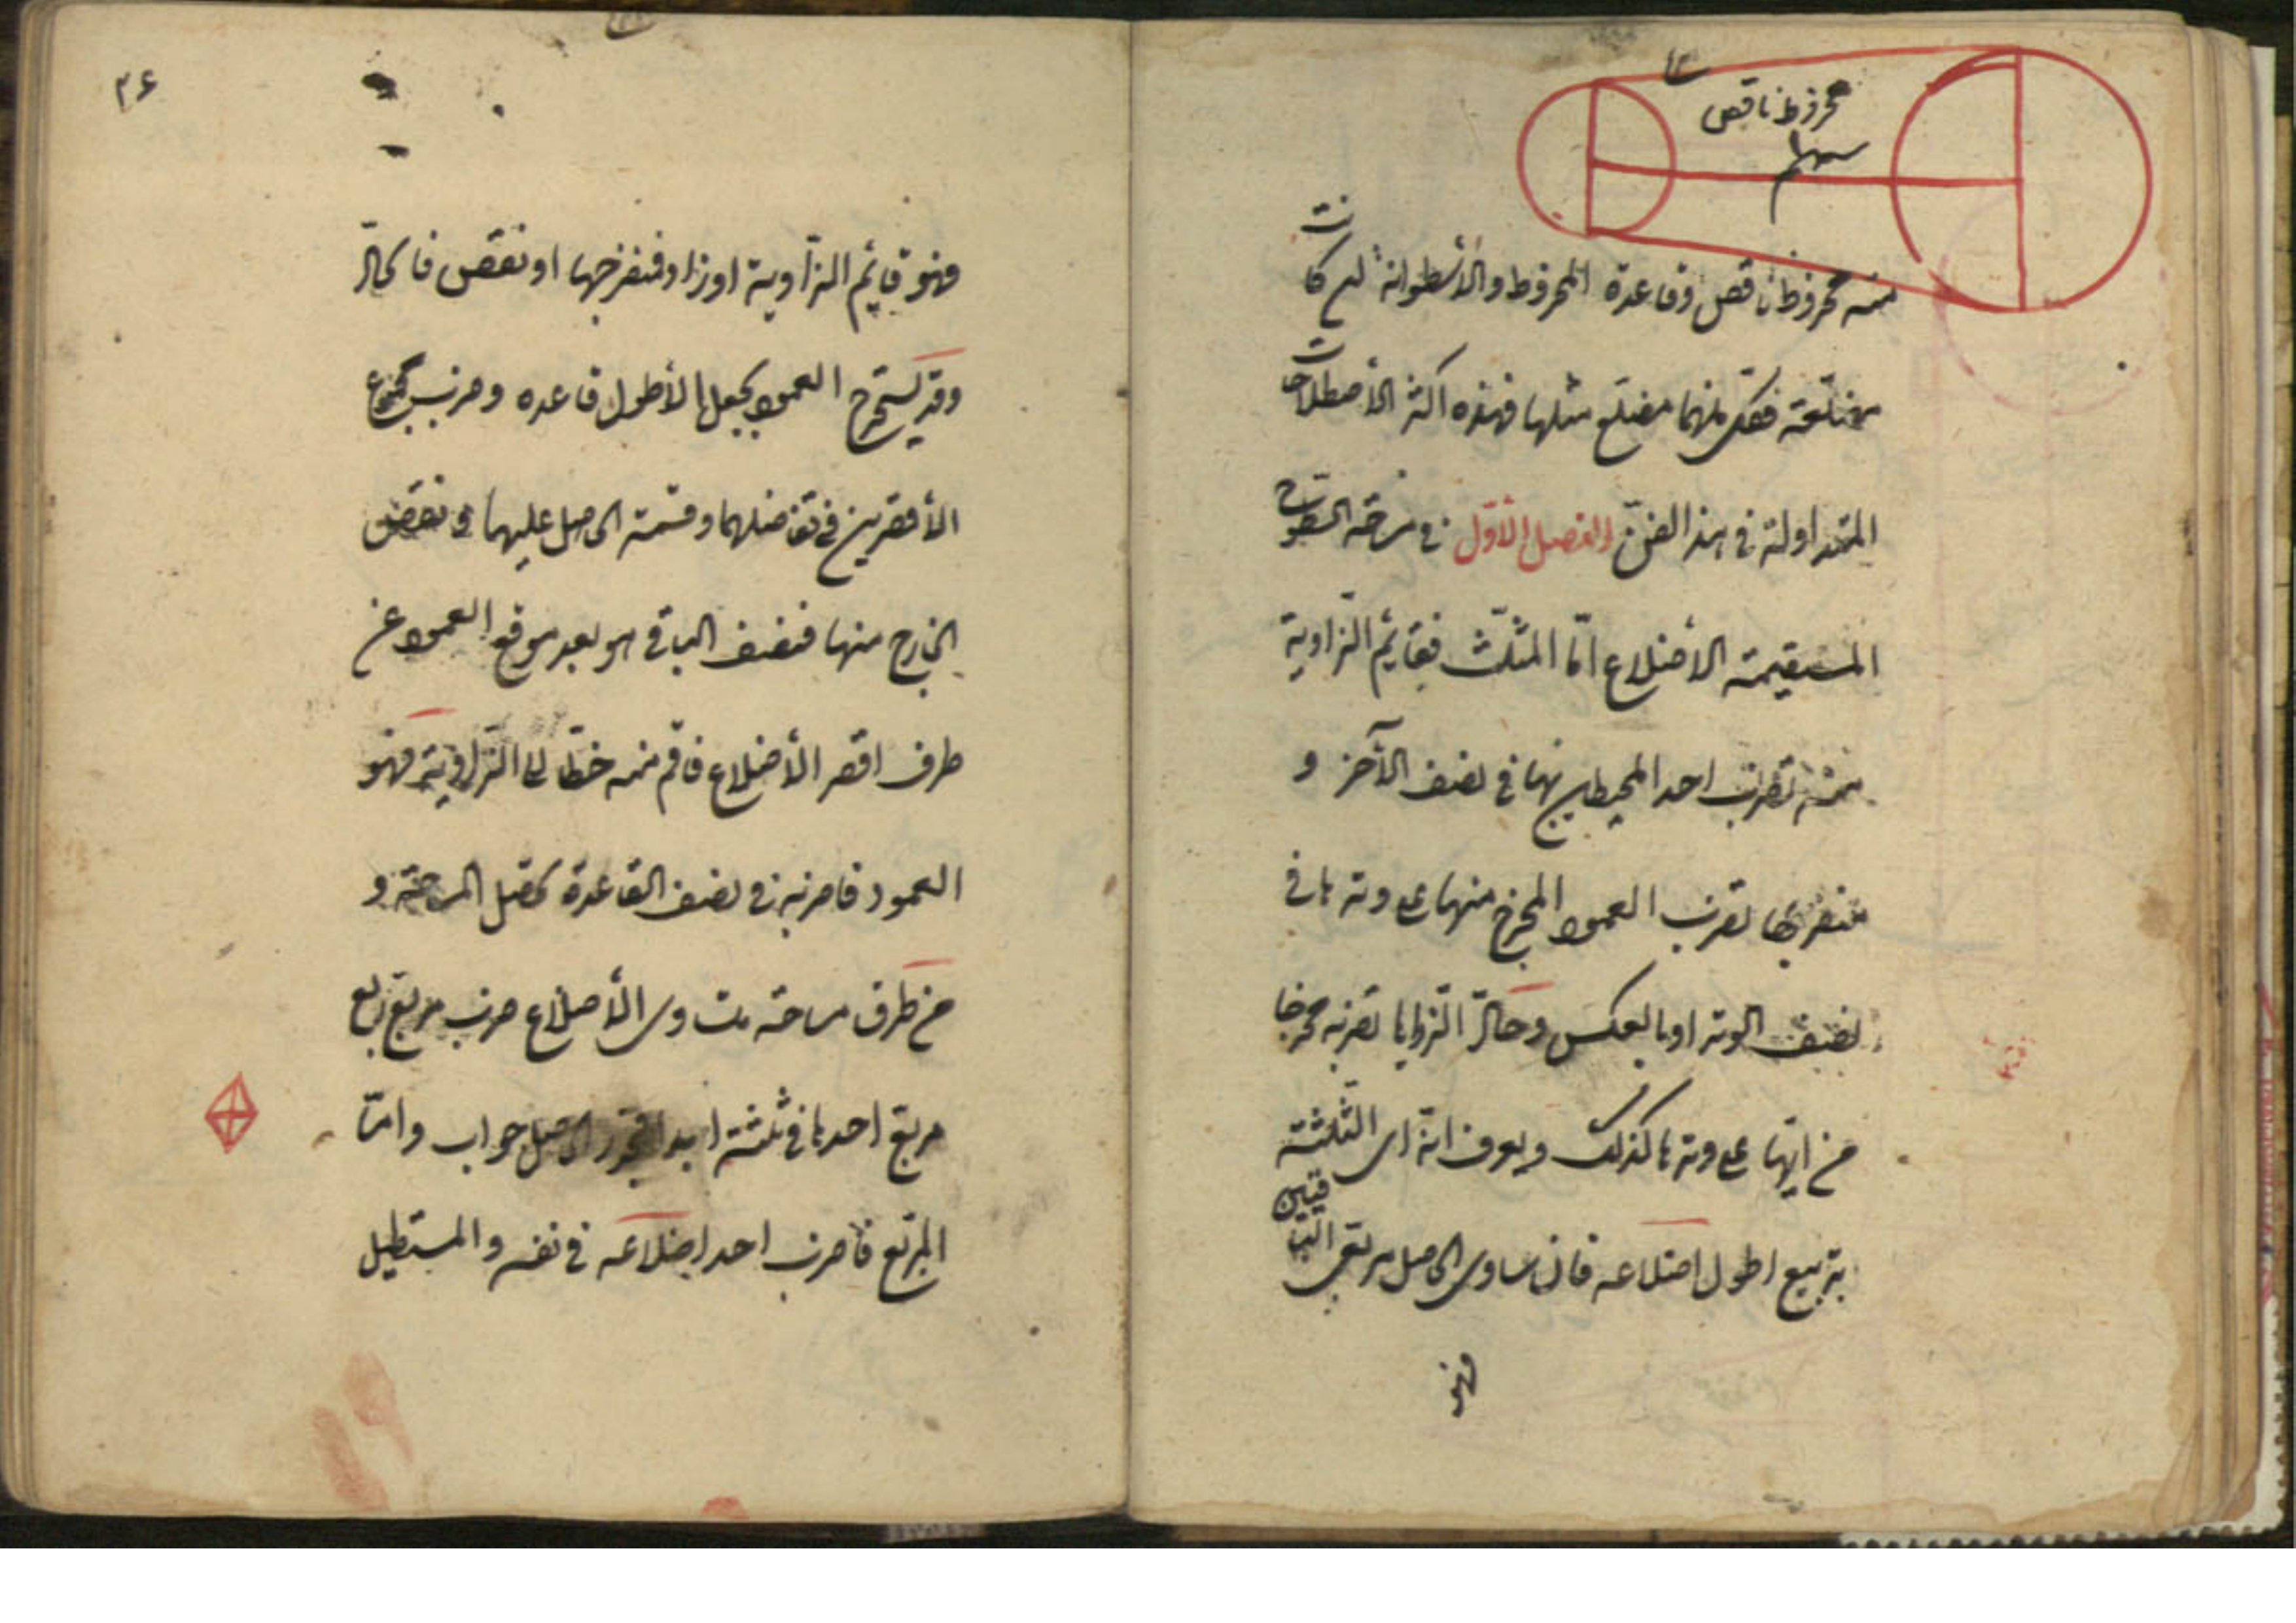 مخروط ناقص
سهم
منه مخروط ناقص وقاعدة المخروط والأسطوانة ان كانت
مضلعة فكل منهما مضلع مثلها فهذه اكثر الأصطلاحات
المتداولة في هذا الفنّ الفصل الأوّل في مساحة السطوح
المستقيمة الأضلاع امّا المثلّث فقائم الزّاوية
منه تضرب احد المحيطين بها في نصف الآخر و
منفرجها تضرب العمود المخرج منها على وترها في
نصف الوتر او بالعكس وحادّ الزّوايا تضربه مخرجا
من ايّها على وترها كذلك ويعرف انه اى الثّلثة
بتربيع اطول اضلاعه فان ساوى الحاصل مربعى الباقيين
فهو
٢۶
فهو قائم الزّاوية او زاد فمنفرجها او نقص فالحادّ
وقد يستخرج العمود بجعل الأطول قاعدة وضرب مجموع
الأقصرين في تفاضلهما وقسمة الحاصل عليها ونقص
الخارج منها فنصف الباقي هو بعد موقع العمود عن
طرف اقصر الأضلاع فاقم منه خطّا الى الزّاوية فهو
العمود فاضربه في نصف القاعدة يحصل المساحة و
من طرق مساحة متساوى الأضلاع ضرب مربع ربع
مربع احدها في ثلثة ابدا فجذر الحاصل جواب وامّا
المربّع فاضرب احد اضلاعه في نفسه والمستطيل